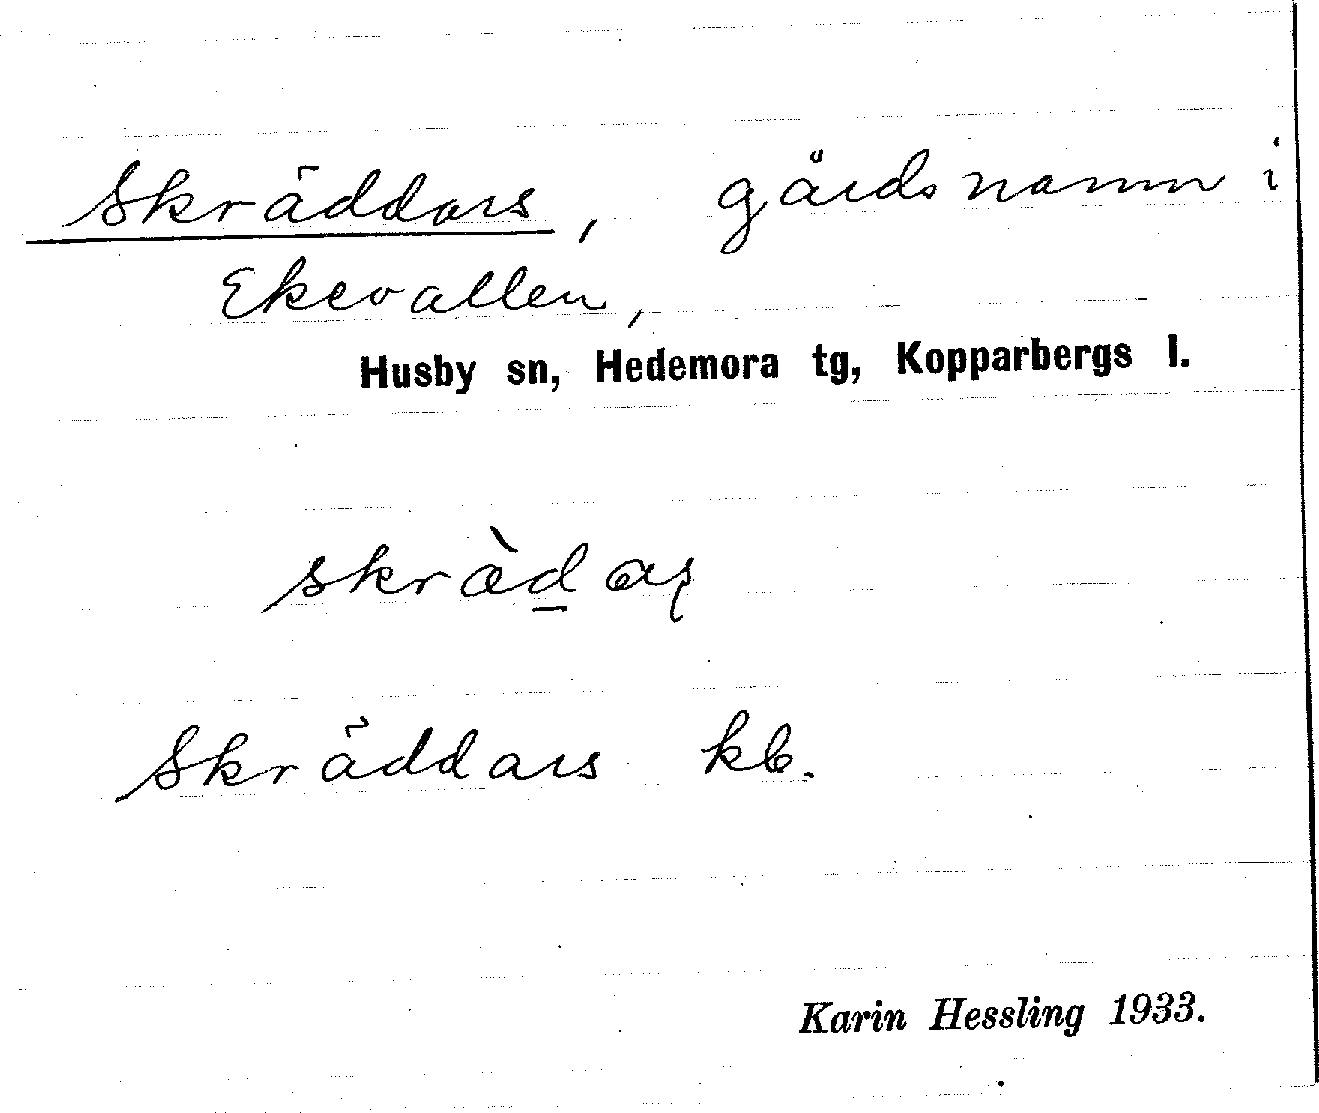 Skräddars, gårdsnamn i
Ekevallen,
Husby sn, Hedemora tg, Kopparbergs l.
Skräddars kb.
Karin Hessling 1933.